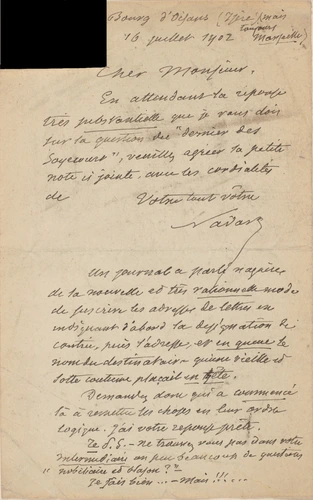 Bourg d'Oisans (Isère) mais
toujours
16 juillet 1902 Marseille)
Cher Monsieur.
En attendant la reponse
très substantielle que je vous dois
sur la question des "dernier des
Soyecourt", veuillez agréer la petite
note ci jointe avec les cordialités
de Votre tout vôtre
Nadar
Un journal a parlé naguère
de la nouvelle et très rationnelle mode
de suscrire les adresses de lettres en
indiquant d'abord la designation de
contrée, puis l'adresse, et en queue le
nom du destinataire - qu'une vieille et
sotte coutume plaçait en tête.
Demandez donc qui a commencé
là à remettre les choses en leur ordre
logique. J'ai votre reponse prête.
Le P.S. - ne trouvez vous pas dans votre
Intermédiaire un peu beaucoup de questions
"nobiliaire et blason"?
Je sais bien ... - Mais !!! ...